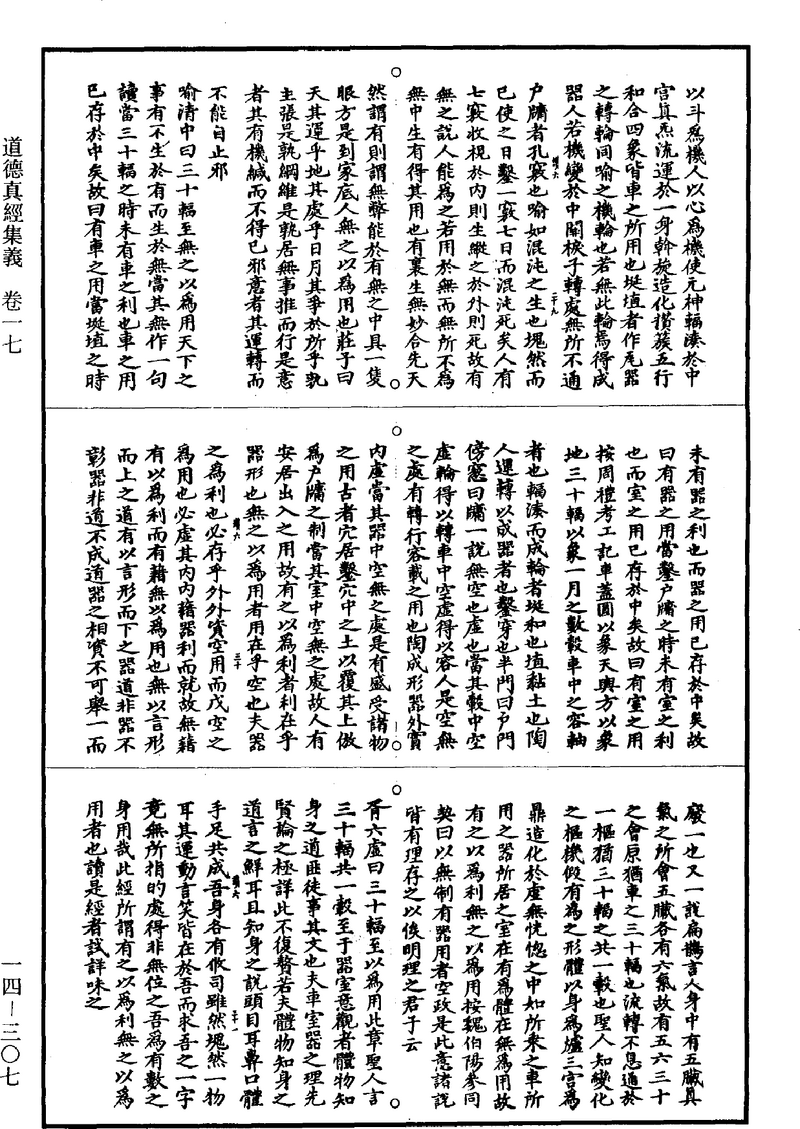 道德真經集義　卷一七
一四—三〇七
以斗爲機人以心爲機使元神輻湊於中
宮真炁流運於一身斡旋造化攢簇五行
和合四象皆車之所用也埏埴者作瓦器
之轉輪同喻之機輪也若無此輪焉得成
器人若機變於中關棙子轉處無所不通
戶牖者孔竅也喻如混沌之生也塊然而
已使之日鑿一竅七日而混沌死矣人有
七竅收視於內則生縱之於外則死故有
無之說人能爲之若用於無而無所不爲
無中生有得其用也有裏生無妙合先天
然謂有則謂無弊能於有無之中具一隻
眼方是到家底人無之以爲用也莊子曰
天其運乎地其處乎日月其爭於所乎孰
主張是孰綱維是孰居無事推而行是意
者其有機緘而不得已邪意者其運轉而
不能自止邪
喻清中曰三十輻至無之以爲用天下之
事有不生於有而生於無當其無作一句
讀當三十輻之時未有車之利也車之用
已存於中矣故曰有車之用當埏埴之時
未有器之利也而器之用已存於中矣故
曰有器之用當鑿戶牖之時未有室之利
也而室之用已存於中矣故曰有室之用
按周禮考工記車蓋圓以象天輿方以象
地三十輻以象一月之數轂車中之容軸
者也輻湊而成輪者埏和也埴黏土也陶
人運轉以成器者也鑿穿也半門曰戶門
傍窻曰牖一說無空也虛也當其轂中空
虛輪得以轉車中空虛得以容人是空無
之處有轉行容載之用也陶成形器外實
內虛當其器中空無之處是有盛受諸物
之用古者穴居鑿穴中之土以覆其上倣
爲戶牖之制當其室中空無之處故人有
安居出入之用故有之以爲利者利在乎
器形也無之以爲用者用在乎空也夫器
之爲利也必存乎外外實空用而成空之
爲用也必虛其內內藉器利而就故無藉
有以爲利而有藉無以爲用也無以言形
而上之道有以言形而下之器道非器不
彰器非道不成道器之相資不可舉一而
廢一也又一說扁鵲言人身中有五臟真
氣之所會五臟各有六氣故有五六三十
之會原猶車之三十輻也流轉不息適於
一樞猶三十輻之共一轂也聖人知變化
之樞機假有爲之形體以身爲爐三宮爲
鼎造化於虛無恍惚之中如所乘之車所
用之器所居之室在有爲體在無爲用故
有之以爲利無之以爲用按魏伯陽參同
契曰以無制有器用者空政是此意諸說
皆有理存之以俟明理之君子云
胥六虛曰三十輻至以爲用此章聖人言
三十輻共一轂至于器室意觀者體物知
身之道匪徒事其文也夫車室器之理先
賢論之極詳此不復贅若夫體物知身之
道言之鮮耳且知身之說頭目耳鼻口體
手足共成吾身各有攸司雖然塊然一物
耳其運動言笑皆在於吾而求吾之一字
竟無所指的處得非無位之吾爲有數之
身用哉此經所謂有之以爲利無之以爲
用者也讀是經者試詳味之